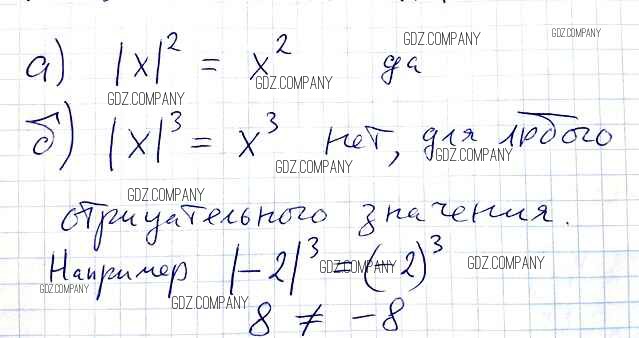 а) |x|² = x² да
б) |x|³ = x³ нет, для любого
отрицательного значения.
Например |-2|³ = (-2)³
8 ≠ -8
GDZ.COMPANY
GDZ.COMPANY
GDZ.COMPANY
GDZ.COMPANY
GDZ.COMPANY
GDZ.COMPANY
GDZ.COMPANY
GDZ.COMPANY
GDZ.COMPANY
GDZ.COMPANY
GDZ.COMPANY
GDZ.COMPANY